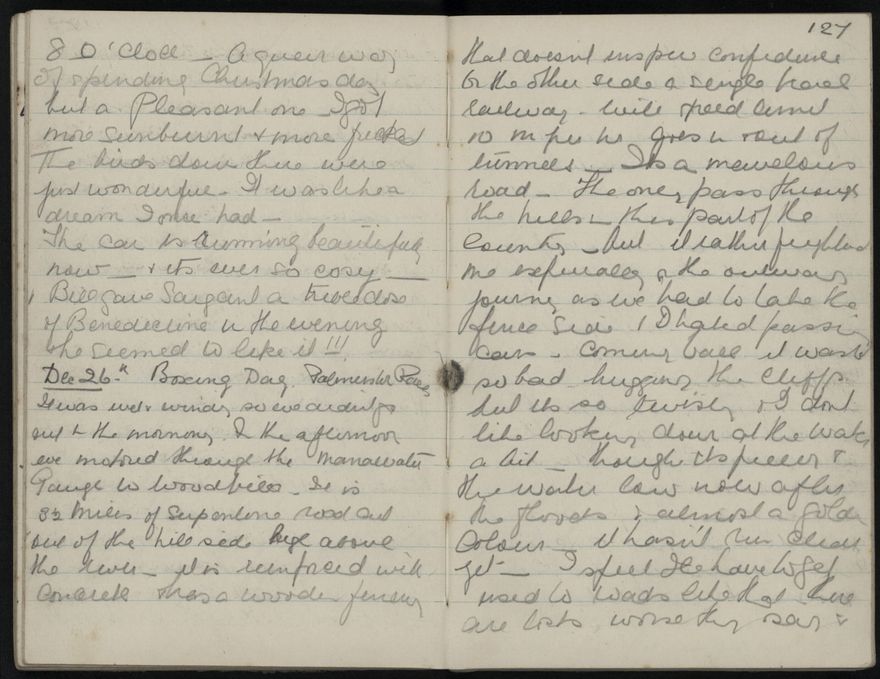 8 O'Clock – A queer way
of spending Christmas day
but a Pleasant one – I got
more sunburnt & more freckled
The birds down there were
just wonderful – It was like a
dream I once had –
The car is running beautifully
now – & its ever so cosy –
Bill gave Sargant a tweedose
of Benedictine in the evening
she seemed to like it !!!
Dec 26th Boxing Day, Palmerston
It was wet & windy so we
out in the morning. In the afternoon
we motored through the Manawatu
Gauge to Woodville – It is
3½ miles of Serpentine road cut
out of the hill side huge above
the river – it is reinforced with
concrete & has a wooden fencing
127
that doesn't inspire confidence
On the other side a single track
railway – with speed limit
10 m per hr goes in & out of
tunnels – Its a marvelous
road – the only pass through
the hills in this part of the
Country – but it rather frightened
me especially on the outward
journey as we had to take the
fence side & I hated passing
cars – coming back it wasn't
so bad hugging the cliffs
but its so twisty & I dont
like looking down at the water
a bit – though its pretty &
the water low now after
the floods & almost a golden
colour – it hasn't run clear
yet – I spect I'll have to get
used to roads like that – there
are lots worse they say &